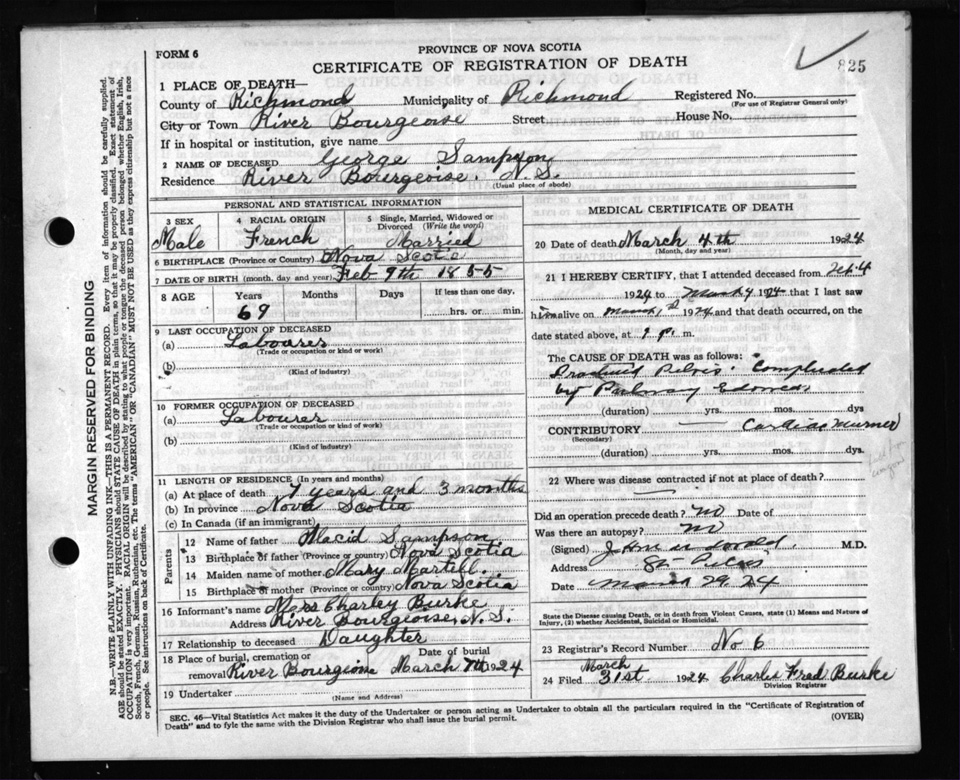 PROVINCE OF NOVA SCOTIA
FORM 6
CERTIFICATE OF REGISTRATION OF DEATH
825
1 PLACE OF DEATH—
County of Richmond Municipality of Richmond Registered No.
(For use of Registrar General only)
City or Town River Bourgeoise Street House No.
If in hospital or institution, give name
2 NAME OF DECEASED George Sampson
Residence River Bourgeoise. N. S.
(Usual place of abode)
PERSONAL AND STATISTICAL INFORMATION
3 SEX Male
4 RACIAL ORIGIN French
5 Single, Married, Widowed or Divorced (Write the word) Married
6 BIRTHPLACE (Province or Country) Nova Scotia
7 DATE OF BIRTH (month, day and year) Feb 9th 1855
8 AGE Years Months Days If less than one day,
69 hrs. or min.
9 LAST OCCUPATION OF DECEASED
(a) Labourer
(Trade or occupation or kind of work)
(b)
(Kind of industry)
10 FORMER OCCUPATION OF DECEASED
(a) Labourer
(Trade or occupation or kind of work)
(b)
(Kind of industry)
11 LENGTH OF RESIDENCE (In years and months)
(a) At place of death years and 3 months
(b) In province Nova Scotia
(c) In Canada (if an immigrant)
Parents
12 Name of father Placid Sampson
13 Birthplace of father (Province or country) Nova Scotia
14 Maiden name of mother Mary Martell.
15 Birthplace of mother (Province or country) Nova Scotia
16 Informant's name Mrs Charley Burke
Address River Bourgeoise, N. S.
17 Relationship to deceased Daughter
18 Place of burial, cremation or removal River Bourgeoise Date of burial March 7th 1924
19 Undertaker
(Name and Address)
MEDICAL CERTIFICATE OF DEATH
20 Date of death March 4th 1924
(Month, day and year)
21 I HEREBY CERTIFY, that I attended deceased from
1924 to March 4 1924 that I last saw
him alive on March 1924 and that death occurred, on the
date stated above, at 9 p. m.
The CAUSE OF DEATH was as follows:
Pelvis. Complicated
by Edema
(duration) yrs. mos. dys
CONTRIBUTORY Cardiac murmer
(Secondary)
(duration) yrs. mos. dys.
22 Where was disease contracted if not at place of death?
Did an operation precede death? No Date of
Was there an autopsy? No
(Signed) M.D.
Address St Peters
Date March 29 24
State the Disease causing Death, or in death from Violent Causes, state (1) Means and Nature of Injury, (2) whether Accidental, Suicidal or Homicidal.
23 Registrar's Record Number No 6
24 Filed March 31st 1924 Charles Fred Burke
Division Registrar
SEC. 46—Vital Statistics Act makes it the duty of the Undertaker or person acting as Undertaker to obtain all the particulars required in the "Certificate of Registration of
Death" and to fyle the same with the Division Registrar who shall issue the burial permit.
(OVER)
MARGIN RESERVED FOR BINDING
N.B.—WRITE PLAINLY WITH UNFADING INK—THIS IS A PERMANENT RECORD. Every item of information should be carefully supplied.
AGE should be stated EXACTLY. PHYSICIANS should STATE CAUSE OF DEATH in plain terms, so that it may be properly classified. Exact statement of
OCCUPATION is very important. RACIAL ORIGIN will be described by stating to what people or tongue the deceased person belonged whether English, Irish,
Scotch, French, German, Russian, Ruthenian, etc. The terms "AMERICAN" OR "CANADIAN" MUST NOT BE USED as they express citizenship but not a race
or people. See instructions on back of Certificate.